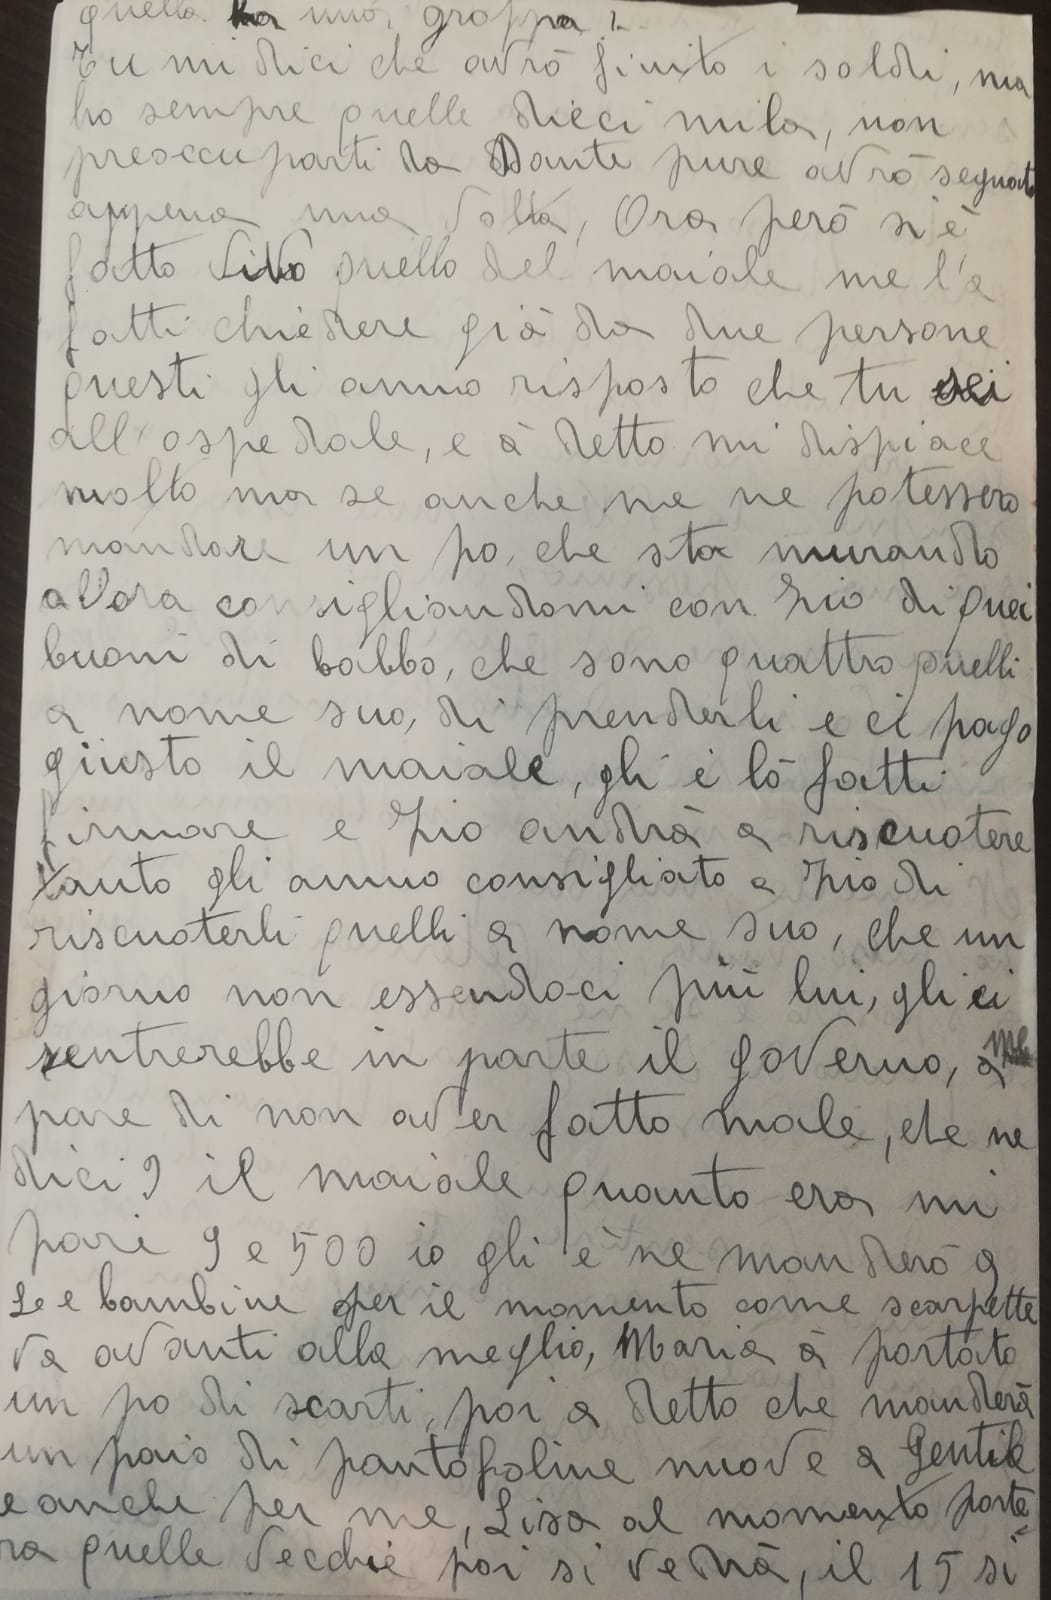 quella. ha uno, groppa !..
Tu mi dici che avrò finito i soldi, ma
ho sempre quelle dieci mila, non
preoccuparti da Dante pure avrò segnato
appena una volta, Ora però si è
fatto vivo quello del maiale me l'a
fatti chiedere già da due persone
questi gli anno risposto che tu sei
all'ospedale, e à detto mi dispiace
molto ma se anche me ne potessero
mandare un po, che sta murando
allora consigliandomi con Zio di quei
buoni di babbo, che sono quattro quelli
a nome suo, di prenderli e ci pago
giusto il maiale, gli è lò fatti
firmare e Zio andrà a riscuotere
tanto gli anno consigliato a Zio di
riscuoterli quelli a nome suo, che un
giorno non essendoci più lui, gli ci
rentrerebbe in parte il governo, a me
pare di non aver fatto male, che ne
dici? il maiale quanto era mi
pare 9 e 500 io gli è ne manderò 9
Le bambine per il momento come scarpette
va avanti alla meglio, Maria à portato
un po di scarti, poi a detto che manderà
un paio di pantofoline nuove a Gentile
e anche per me, Lisa al momento porte=
ra quelle vecchie poi si vedrà, il 15 si